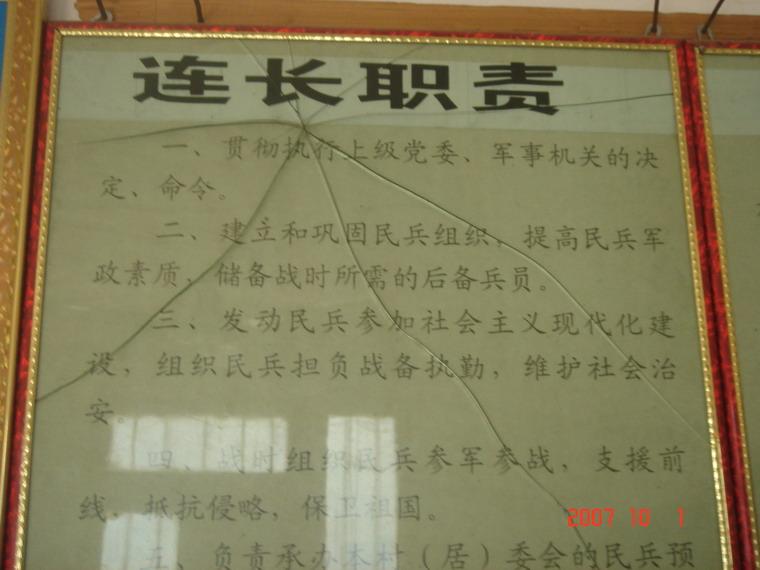 连长职责
一、贯彻执行上级党委、军事机关的决
定、命令。
二、建立和巩固民兵组织，提高民兵军
政素质，储备战时所需的后备兵员。
三、发动民兵参加社会主义现代化建
设，组织民兵担负战备执勤，维护社会治
安。
四、战时组织民兵参军参战，支援前
线，抵抗侵略，保卫祖国。
五、负责承办本村（居）委会的民兵预
2007 10 1